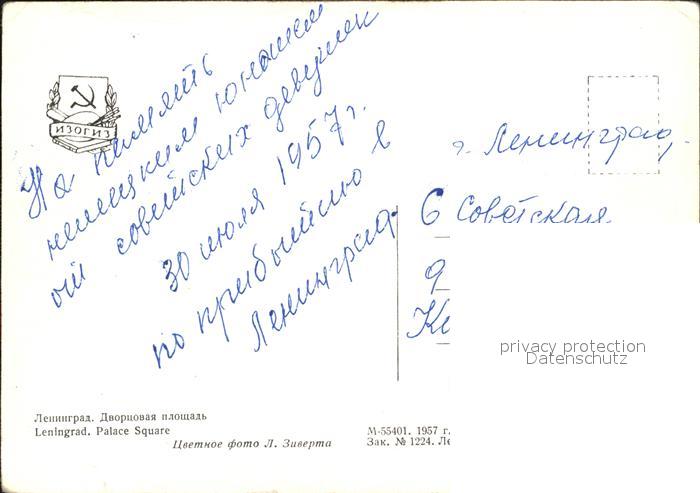 ИЗОГИЗ
На память
немецким юношам
от советских девушек
30 июля 1957 г.
по прибытию в
Ленинград.
г. Ленинград,
6 Советская
9
privacy protection
Datenschutz
Ленинград. Дворцовая площадь
Leningrad. Palace Square
Цветное фото Л. Зиверта
М-55401. 1957 г.
Зак. № 1224. Ле